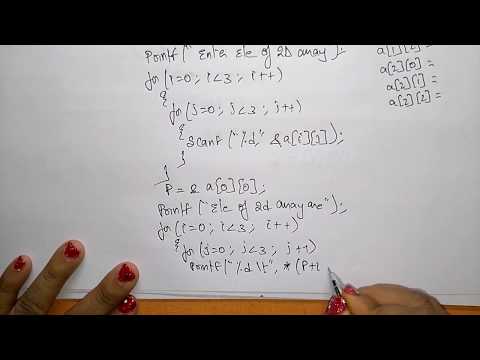 Printf(" Enter Ele of 2D array");
for (i=0; i<3; i++)
{
for (j=0; j<3; j++)
{
Scanf("%d," &a[i][j]);
}
}
P = & a[0][0];
Printf("Ele of 2d array are");
for (i=0; i<3; i++)
{ for (j=0; j<3; j++)
Printf("%d \t", *(P+i
a[2][0] =
a[2][1] =
a[2][2] =